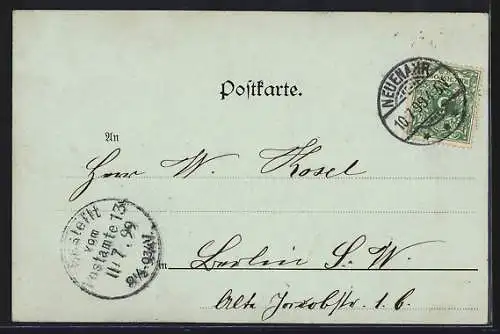 Postkarte.
NEUENAHR
10.7.99.
An
Herrn W. Kosel
Bestellt
vom
Postamte 13
11/7.99
in Berlin S. W.
Alte Jacobstr. 1. b.